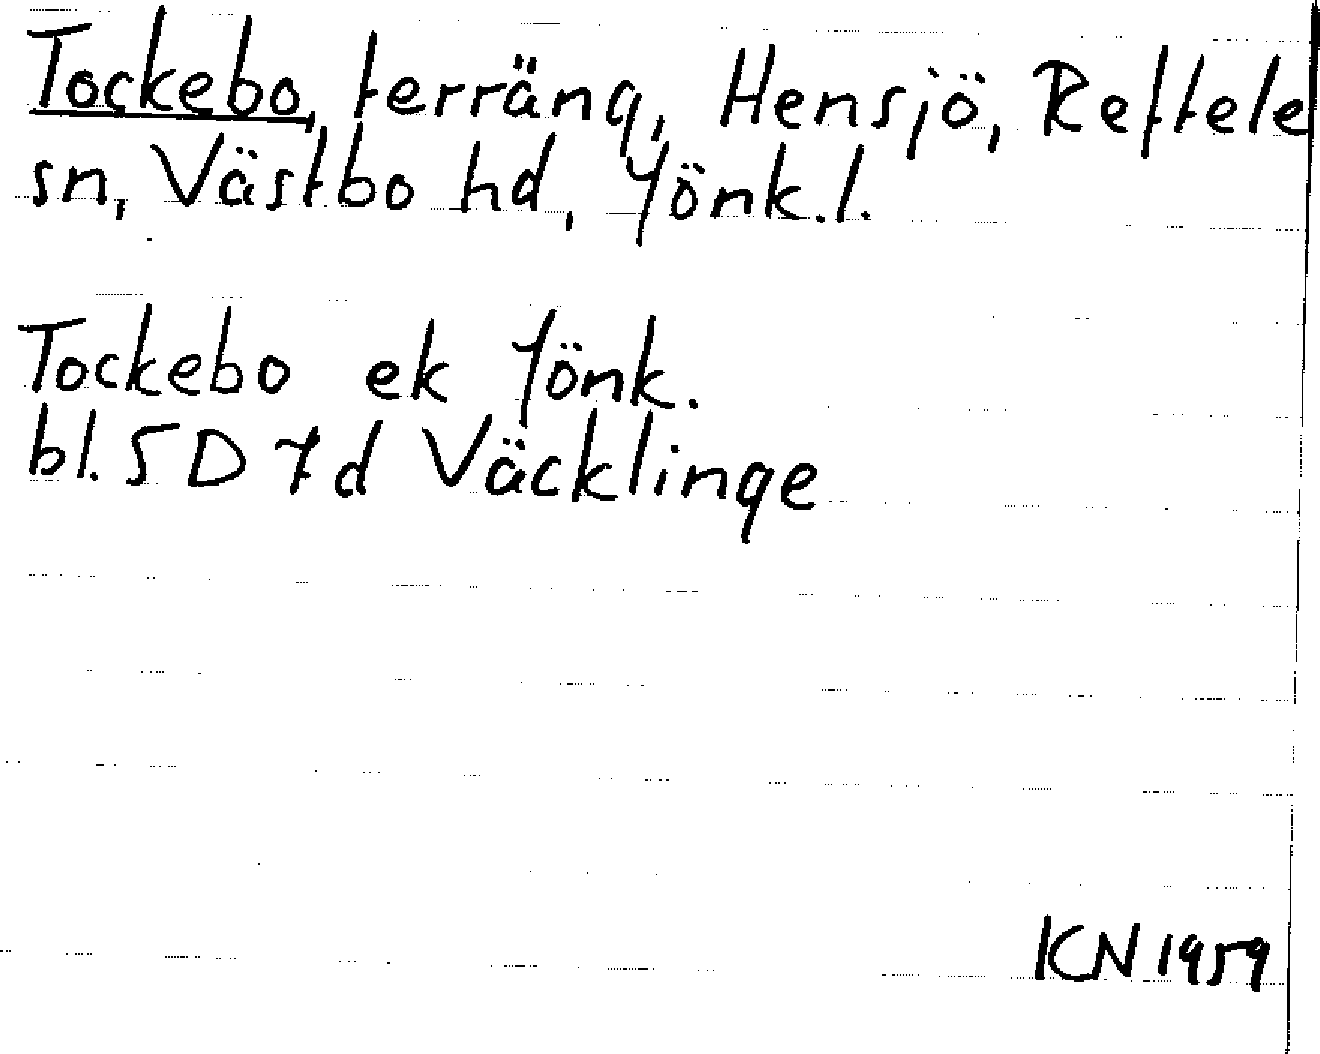 Tockebo, terräng, Hensjö, Reftele
sn, Västbo hd, Jönk.l.
Tockebo ek Jönk.
bl. 5D 7d Väcklinge
KN 1959